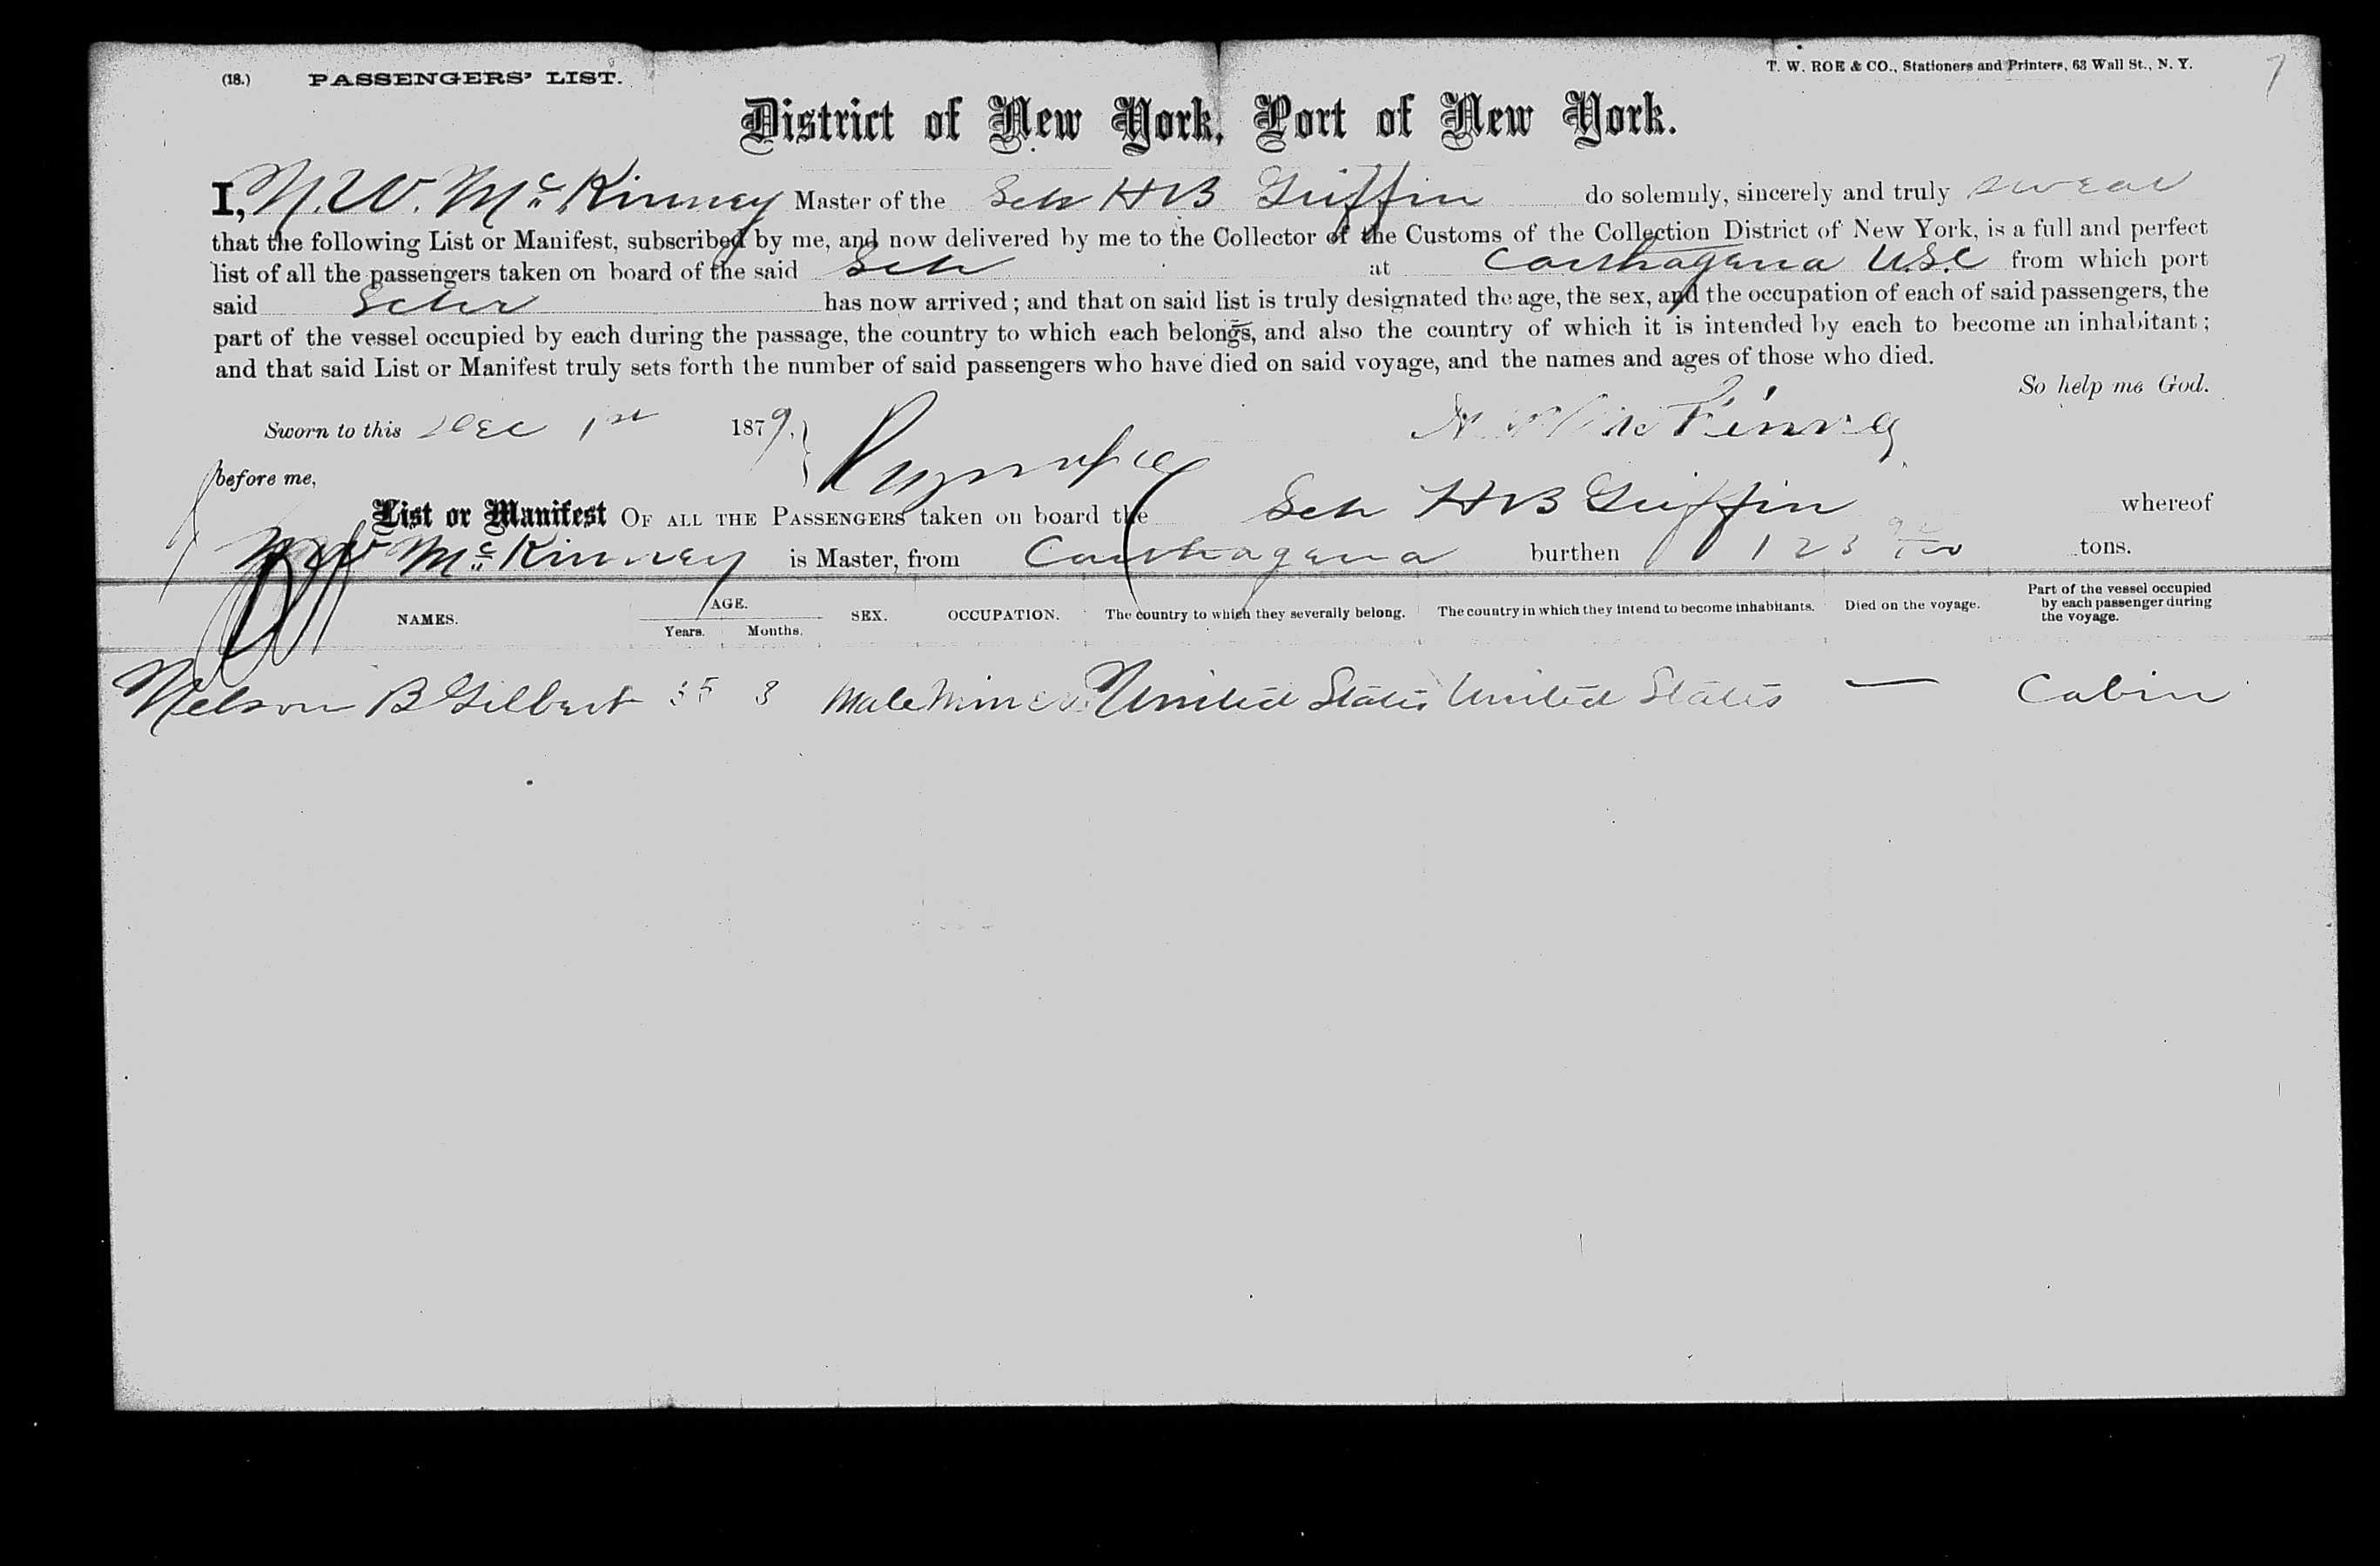 (18.) PASSENGERS' LIST. T. W. ROE & CO., Stationers and Printers, 63 Wall St., N. Y. 7
District of New York, Port of New York.
I, N. W. McKinney Master of the Sch H B Griffin do solemnly, sincerely and truly swear
that the following List or Manifest, subscribed by me, and now delivered by me to the Collector of the Customs of the Collection District of New York, is a full and perfect
list of all the passengers taken on board of the said Sch at Carthagena U.S.C from which port
said Schr has now arrived; and that on said list is truly designated the age, the sex, and the occupation of each of said passengers, the
part of the vessel occupied by each during the passage, the country to which each belongs, and also the country of which it is intended by each to become an inhabitant;
and that said List or Manifest truly sets forth the number of said passengers who have died on said voyage, and the names and ages of those who died.
So help me God.
Sworn to this Dec 1st 1879. N W McKinney
before me,
List or Manifest OF ALL THE PASSENGERS taken on board the Sch H B Griffin whereof
N W McKinney is Master, from Carthagena burthen 123 tons.
NAMES. AGE. Years. Months. SEX. OCCUPATION. The country to which they severally belong. The country in which they intend to become inhabitants. Died on the voyage. Part of the vessel occupied by each passenger during the voyage.
Nelson B Gilbert 35 3 Male Miner United States United States — Cabin